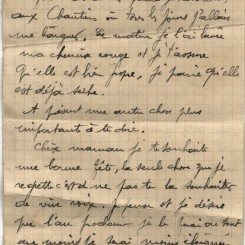 aux Chantiers où tous les jours j'allais
me baigner. Ce matin je l'ai lavée
ma chemise rouge et je t'assure
qu'elle est bien propre, je pense qu'elle
est déjà sèche.
A présent une autre chose plus
importante à te dire.
Chère maman je te souhaite
une bonne fête, la seule chose que je
regrette est de ne pas te la souhaiter
de vive voix. Je pense et je désire
que l'an prochain je le ferai ou tout
au moins je serai moins éloigné